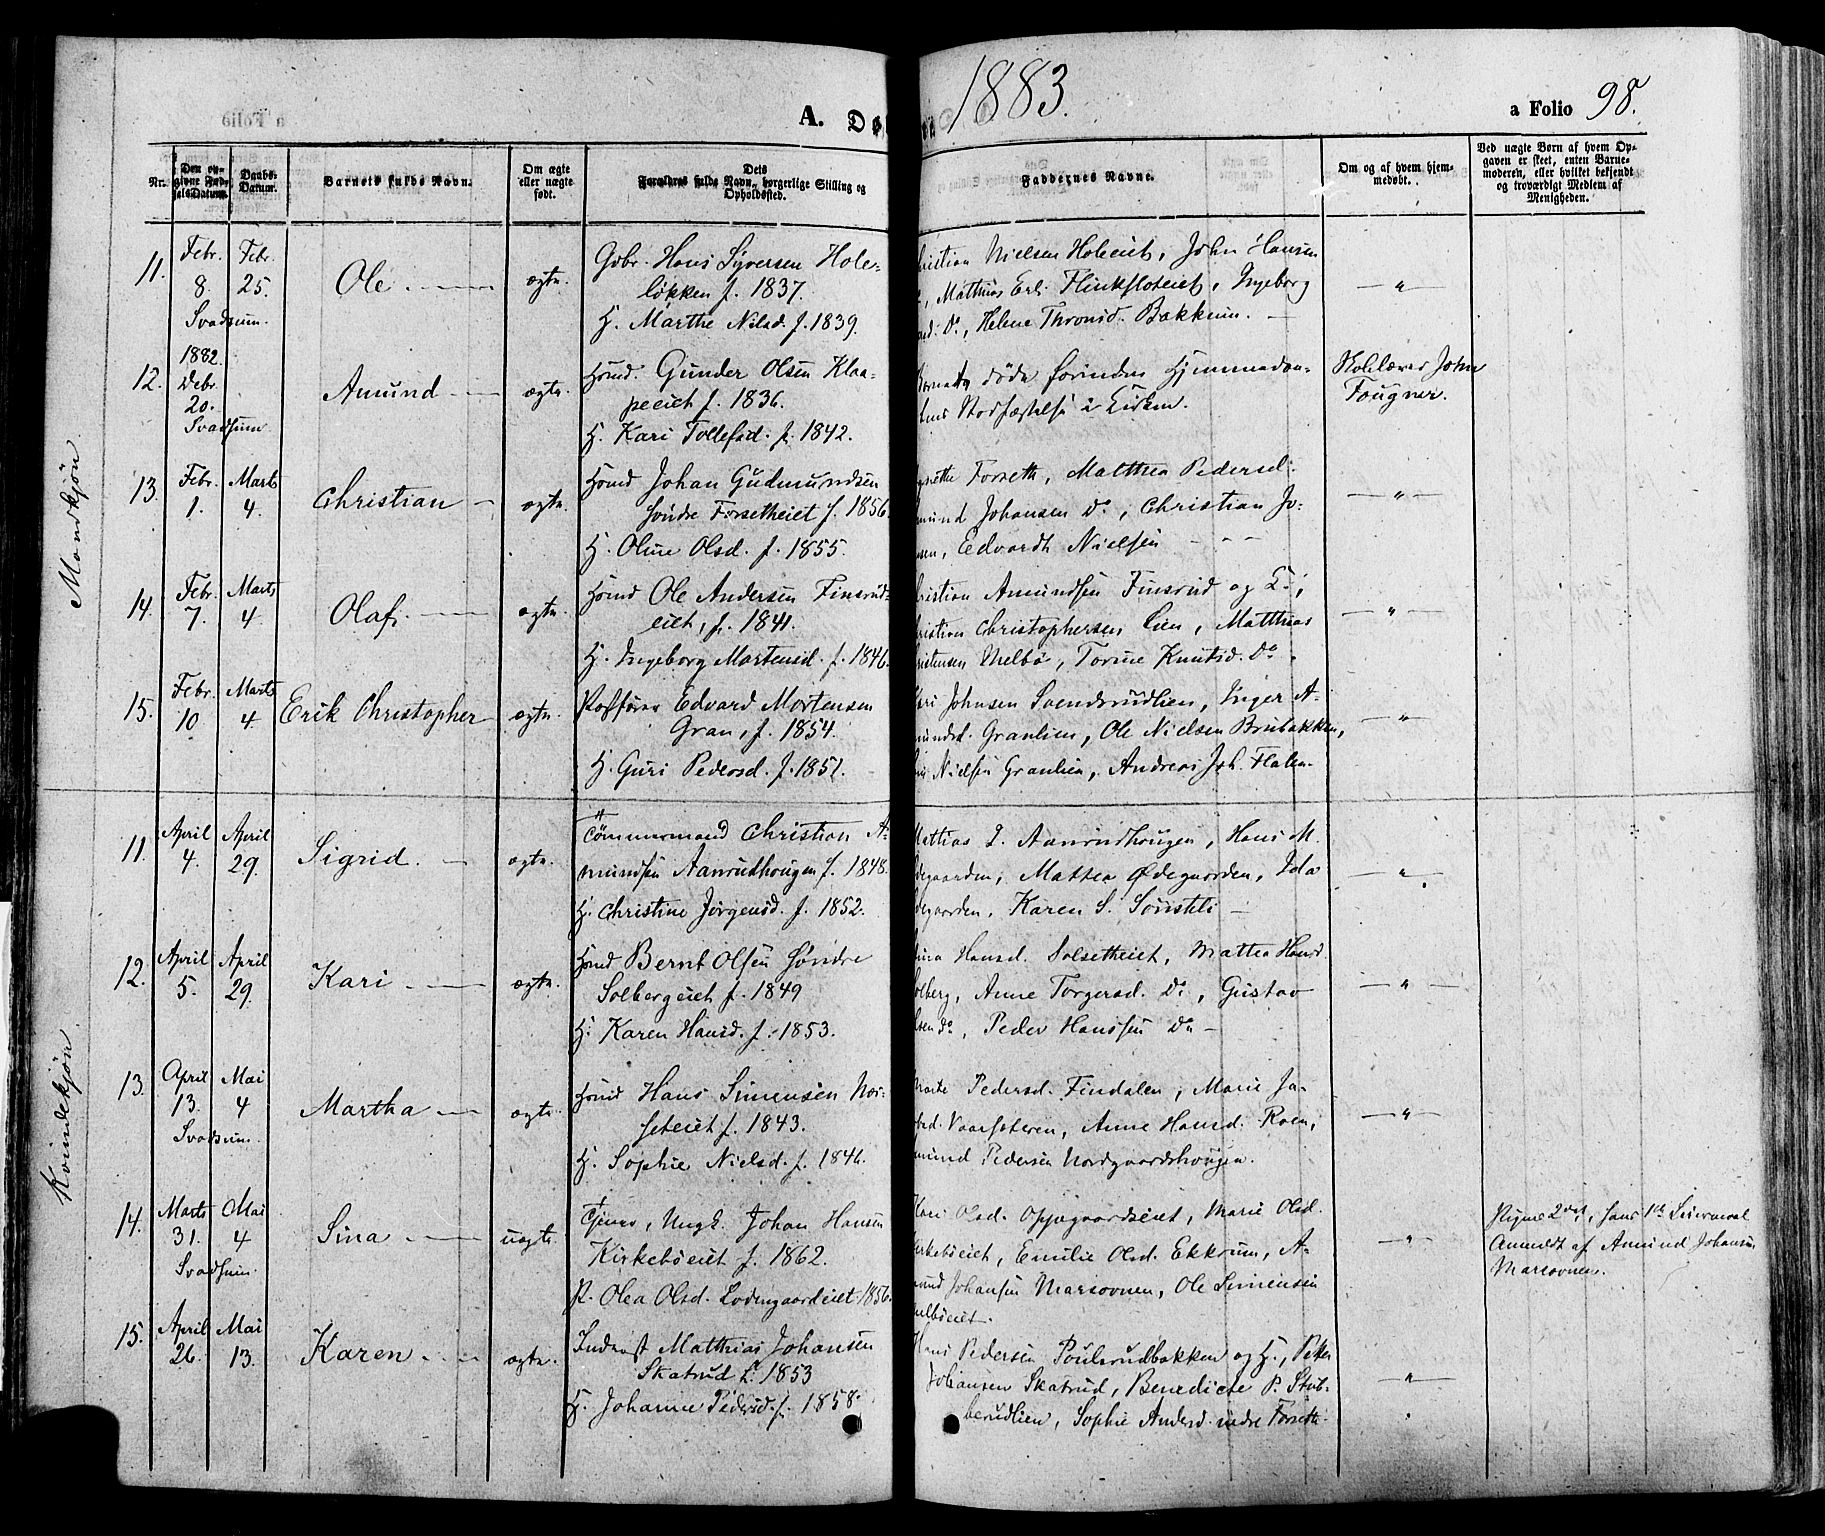 A. Dø
1883.
a Folio 98.
Nr.
Den angivne Fødselsdatum.
Daabs-Datum.
Barnets fulde Navn.
Om ægte eller uægte født.
Dets Forældres fulde Navn, borgerlige Stilling og Opholdssted.
Faddernes Navne.
Om og af hvem hjemmedøbt.
Ved uægte Børn af hvem Opgaven er skeet, enten Barnemoderen, eller hvilket bekjendt og troværdigt Medlem af Menigheden.
Mandkjøn
11.
Febr. 8. Svadsum.
Febr. 25.
Ole
ægte.
Gdbr. Hans Syversen Hole-
løkken f. 1837.
H. Marthe Nilsd. f. 1839.
ristian Nielsen Holeeiet, John Hansen
Matthias Erl. Flinkfloteiet, Ingeborg
Do, Helene Thronsd. Bakkum.
— " —
12.
1882. Debr. 20. Svadsum
Amund
ægte.
Hsmd. Gunder Olsen Klaa-
peeiet f. 1836.
H. Kari Tollefsd. f. 1842.
Barnet døde forinden Hjemmedaa-
bens Stadfæstelse i Kirken.
Skolelærer John
Fougner.
13.
Febr. 1.
Marts 4.
Christian
ægte.
Hsmd Johan Gudmundsen
søndre Forsetheiet f. 1856.
H. Oline Olsd. f. 1855.
Forseth, Matthea Pedersd.
mund Johansen Do, Christian Jo-
sen, Edvardt Nielsen
— " —
14.
Febr. 7.
Marts 4.
Olaf.
ægte.
Hsmd Ole Andersen Finsrud-
eiet, f. 1841.
H. Ingeborg Mortensd. f. 1846.
ristian Amundsen Finsrud og K.,
ristian Christophersen Lien, Matthias
ristensen Melbø, Torine Knutsd. Do.
— " —
15.
Febr. 10
Marts 4.
Erik Christopher
ægte.
Postfører Edvard Mortensen
Gran, f. 1854.
H. Guri Pedersd. f. 1851.
Johnsen Svendsrudlien, Inger A-
mundsd. Granlien, Ole Nielsen Brubakken,
Nielsen Granlien, Andreas Joh. Flaten.
— " —
Kvindekjøn.
11.
April 4.
April 29.
Sigrid.
ægte.
Tømmermand Christian A-
mundsen Aanrudhougen f. 1848.
H. Christine Jørgensd. f. 1852.
Mathias J. Aanrudhougen, Hans M.
degaarden, Mathea Ødegaarden, Ida
degaarden, Karen S. Sønsteli
— " —
12.
April 5.
April 29.
Kari
ægte.
Hsmd Bernt Olsen søndre
Solbergeiet f. 1849
H. Karen Hansd. f. 1853.
Hansd. Solsetheiet, Mathea Hansd
olberg, Anne Torgersd. Do, Gustav
lsen Do, Peder Hanssen Do
— " —
13.
April 13. Svadsum.
Mai 4
Martha
ægte.
Hsmd Hans Simensen Nor-
seteiet f. 1843.
H. Sophie Nielsd. f. 1846.
Marte Pedersd. Findalen, Marie Ja-
Vaarsæteren, Anne Hansd. Roen,
mund Pedersen Nordgaardshougen.
— " —
14.
Marts 31. Svadsum.
Mai 4
Sina
uægte.
Tjener, Ungk. Johan Hansen
Kirkebøeiet f. 1862.
P. Olea Olsd. Lodengaardeiet. 1856.
Kari Olsd. Oppegaardseiet, Marie Olsd.
irkebøeiet, Emilie Olsd. Ekkrum, A-
mund Johansen Marsovnen, Ole Simensen
elbøeiet.
— " —
Pigens 2det, hans 1ste Leiermaal
Anmeldt af Amund Johansen
Marsovnen.
15.
April 26.
Mai 13.
Karen
ægte.
Inderst Matthias Johansen
Skatrud f. 1853
H. Johanne Pedersd. f. 1858.
Hans Pedersen Poulsrudbakken og H., Peter
Johansen Skatrud, Benedicte P. Stub-
berudlien, Sophie Andersd. nedre Forseth.
— " —